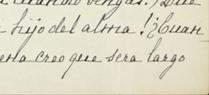 cuando vengas. ¡Que
hijo del alma! ¡Cuan
ena creo que sera largo